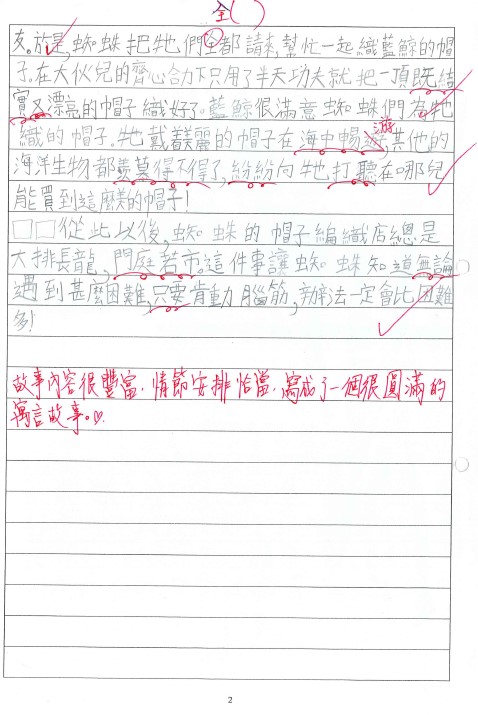 全( )
友。於是,蜘蛛把牠們全都請來幫忙一起織藍鯨的帽
子。在大伙兒的齊心合力下只用了半天功夫就把一頂既結
實又漂亮的帽子織好了。藍鯨很滿意蜘蛛們為牠
織的帽子。牠戴着美麗的帽子在海中暢遊,其他的
游
海洋生物都羨慕得不得了,紛紛向牠打聽在哪兒
能買到這麼美的帽子!
□□從此以後,蜘蛛的帽子編織店總是
大排長龍,門庭若市。這件事讓蜘蛛知道無論
遇到甚麼困難,只要肯動腦筋,辦法一定會比困難
多!
故事內容很豐富,情節安排恰當,寫成了一個很圓滿的
寓言故事。
2